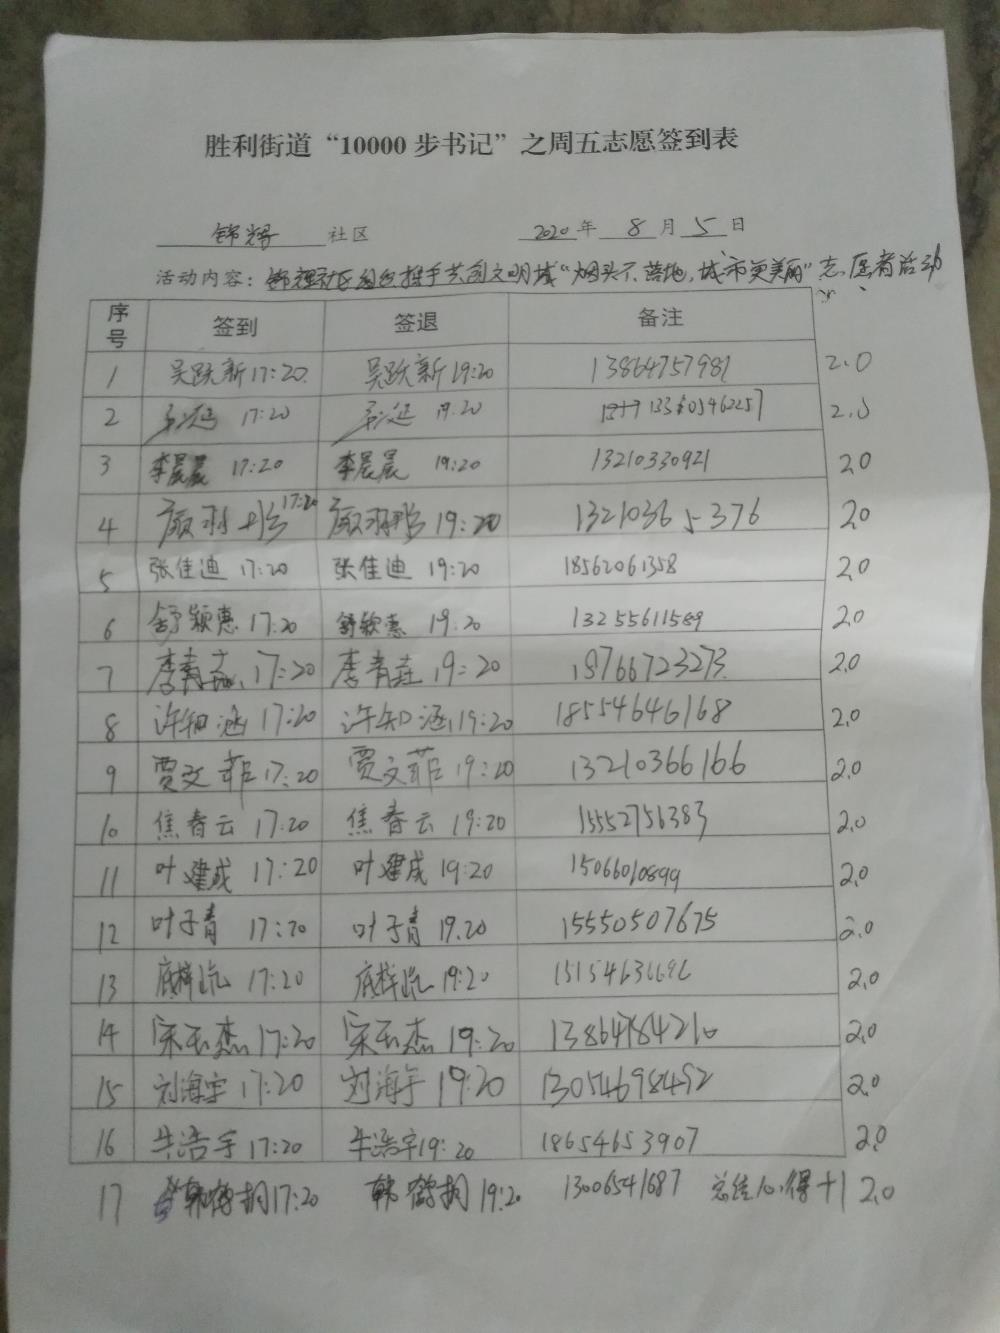 胜利街道“10000 步书记”之周五志愿签到表
锦辉 社区 2020 年 8 月 5 日
活动内容：锦辉社区组织携手共创文明城“烟头不落地，城市更美丽”志愿者活动
序号 签到 签退 备注
1 吴跃新 17:20 吴跃新 19:20 13864757981 2.0
2 17:20 19:20 2.0
3 李晨晨 17:20 李晨晨 19:20 13210330921 2.0
4 17:20 19:20 13210365376 2.0
5 张佳迪 17:20 张佳迪 19:20 18562061358 2.0
6 舒颖惠 17:20 舒颖惠 19:20 13255611589 2.0
7 李青垚 17:20 李青垚 19:20 18766723273 2.0
8 许知涵 17:20 许知涵 19:20 18554646168 2.0
9 贾文菲 17:20 贾文菲 19:20 13210366166 2.0
10 焦春云 17:20 焦春云 19:20 15552756383 2.0
11 叶建成 17:20 叶建成 19:20 15066010899 2.0
12 叶子青 17:20 叶子青 19.20 15550507675 2.0
13 17:20 19:20 2.0
14 宋玉杰 17:20 宋玉杰 19:20 13864784210 2.0
15 刘海宇 17:20 刘海宇 19:20 13054698492 2.0
16 牛浩宇 17:20 牛浩宇 19:20 18654653907 2.0
17 17:20 19:20 13006541687 总结心得+1 2.0